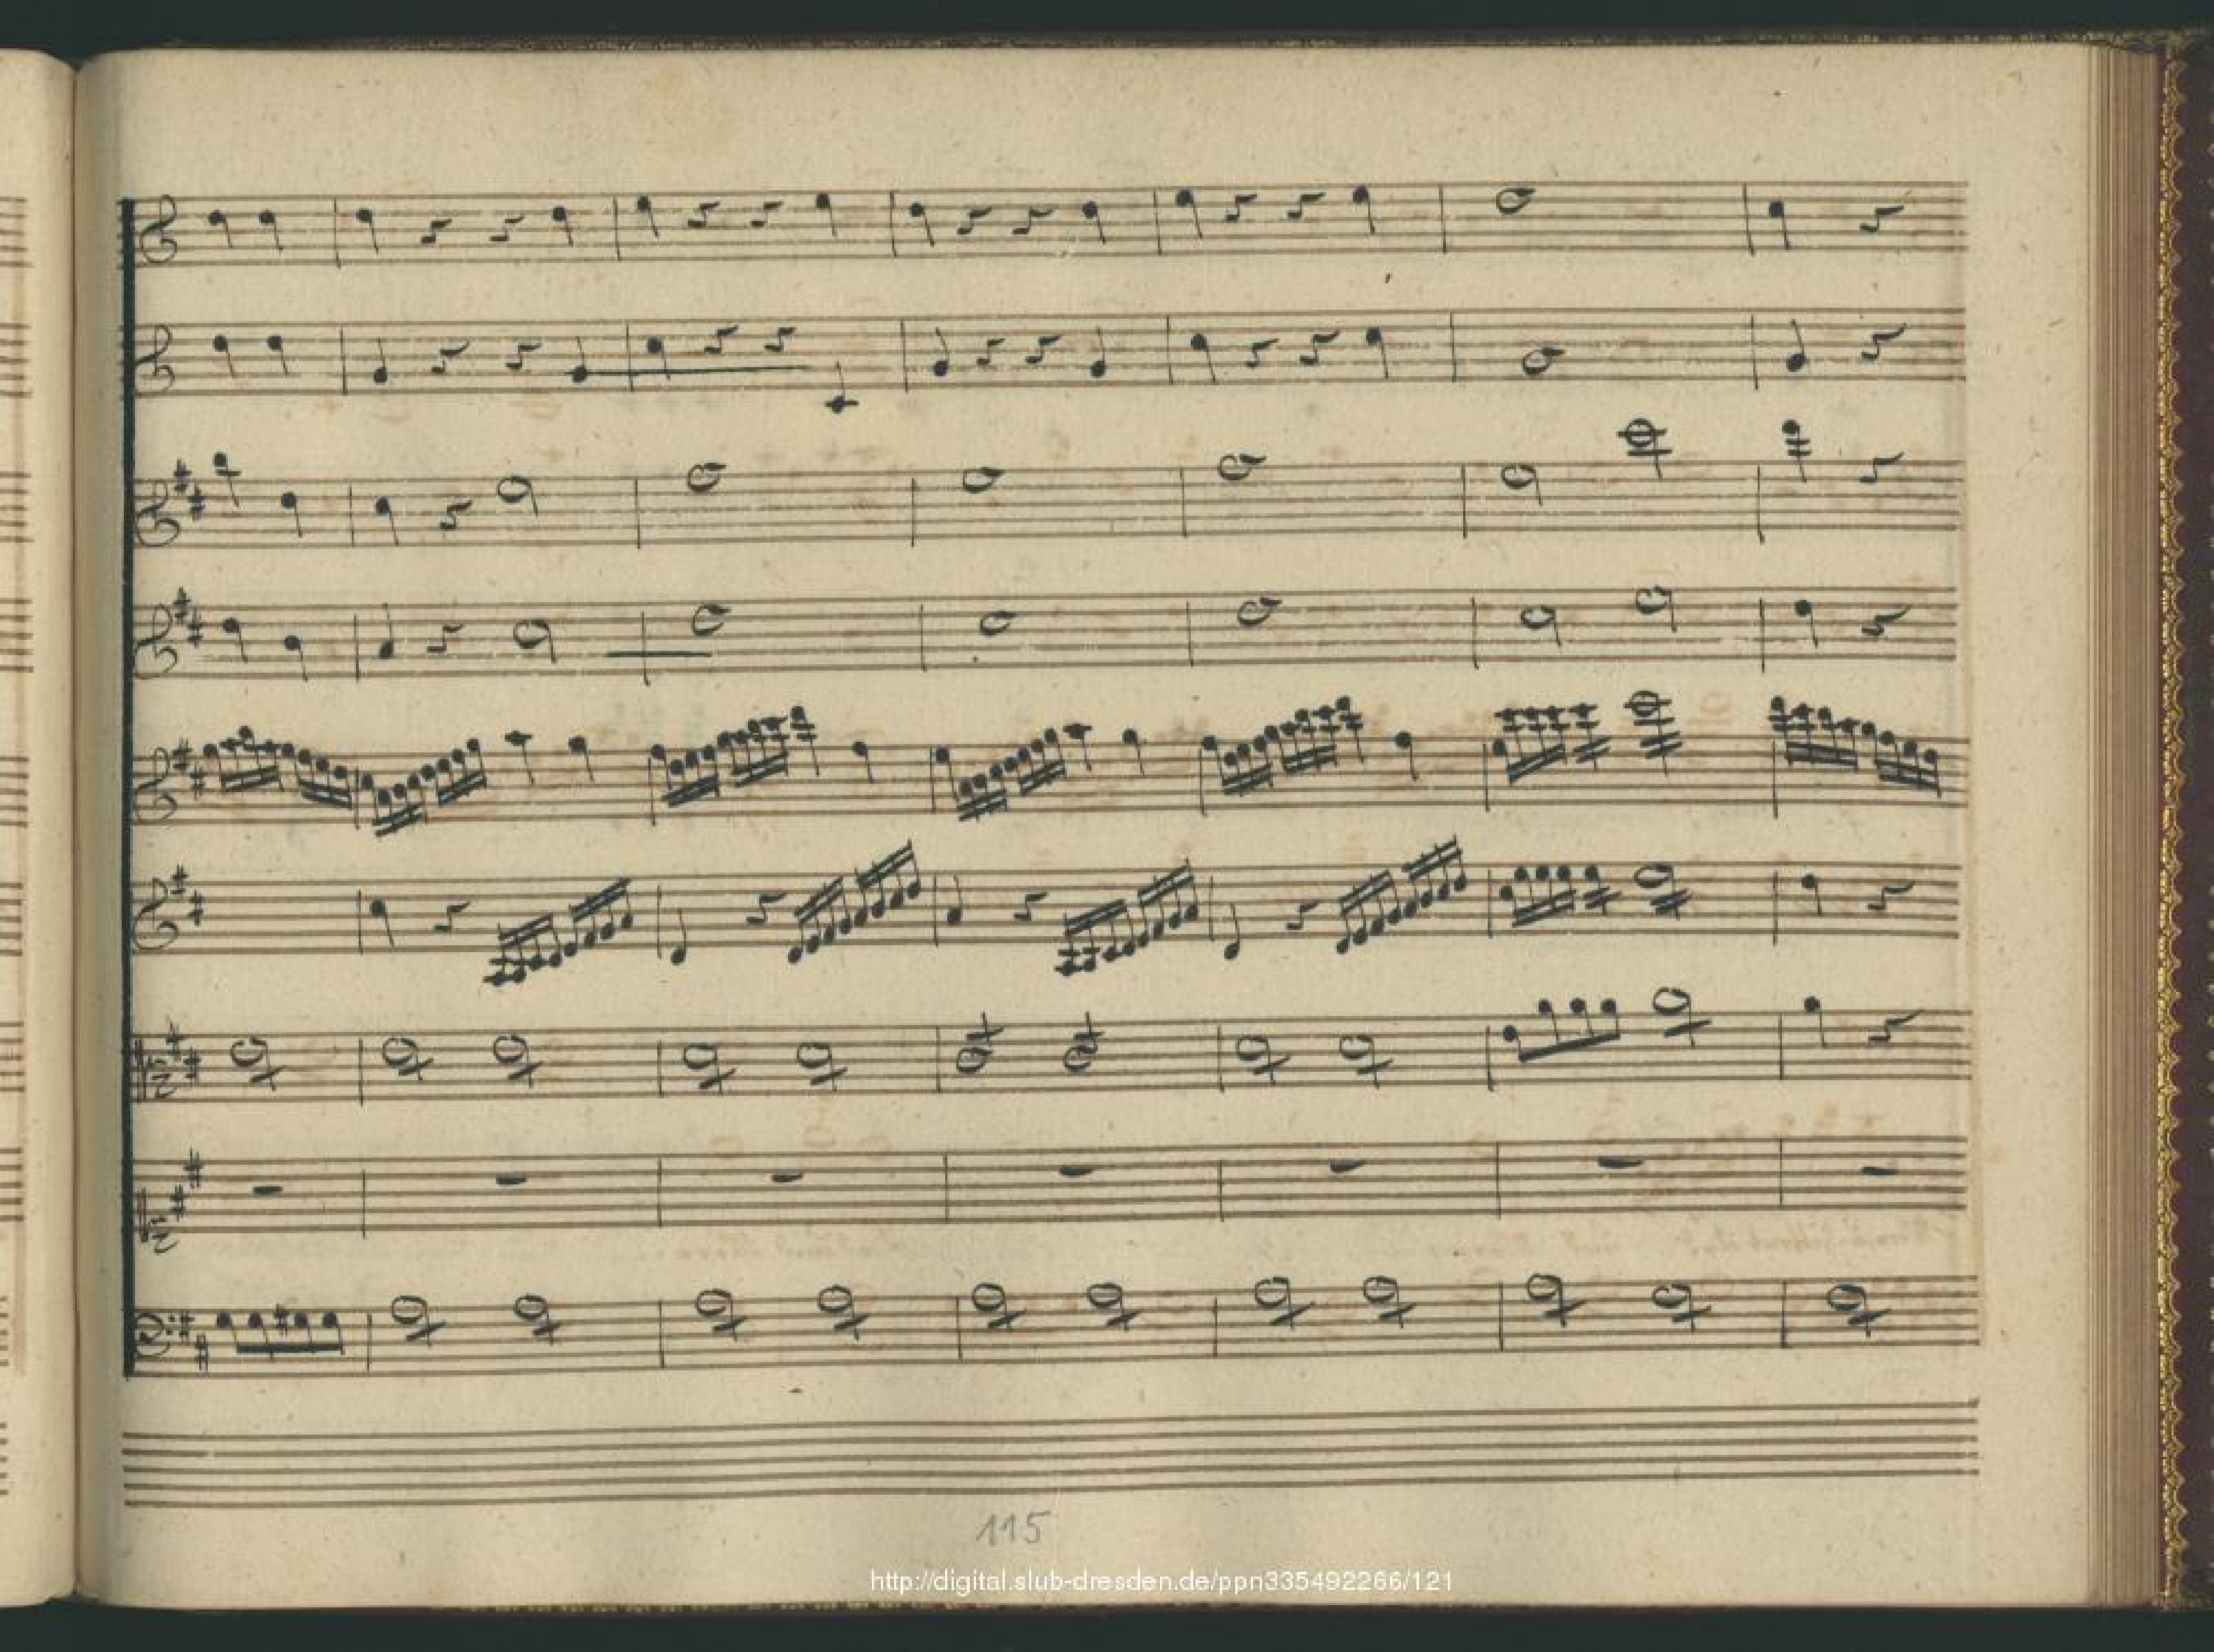 115
http://digital.slub-dresden.de/ppn335492266/121